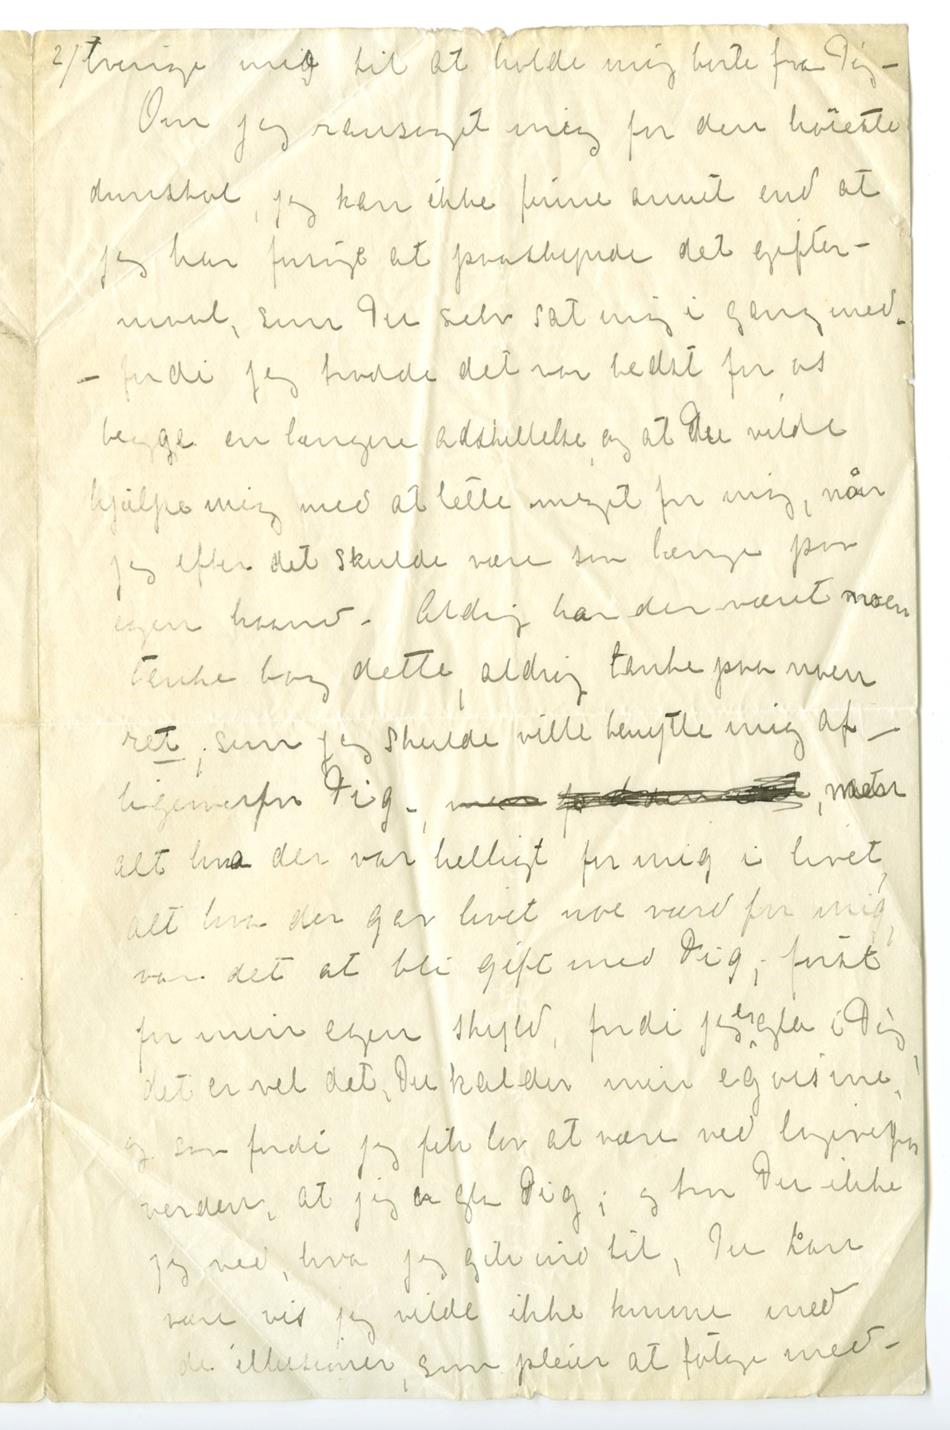 2/ tvinge mig til at holde mig borte fra Dig –
Om jeg ransaget mig for den høieste
domstol, jeg kan ikke finne annet end at
jeg har søgt at paaskynde det gifter-
maal, som Du selv sat mig i gang med –
– fordi jeg trodde det var bedst for os
begge en længere adskillelse, og at Du vilde
hjælpe mig med at lette meget for mig, når
jeg efter det skulde være saa længe paa
egen haand – Aldrig har der været noen
tanke bag dette, aldrig tanke paa noen
ret, som jeg skulde ville benytte mig af –
ligeoverfor Dig –, men
alt hva der var helligt for mig i livet,
alt hva der gav livet noe værd for mig,
var det at bli gift med Dig; først
for min egen skyld, fordi jeg er gla i Dig,
det er vel det, Du kalder min egoisme,
og saa fordi jeg fik lov at være ved
verden, at jeg er gla Dig; og tro Du ikke
jeg ved, hva jeg gik ind til, Du kan
være vis jeg vilde ikke komme med
de illusioner, som pleier at følge med –